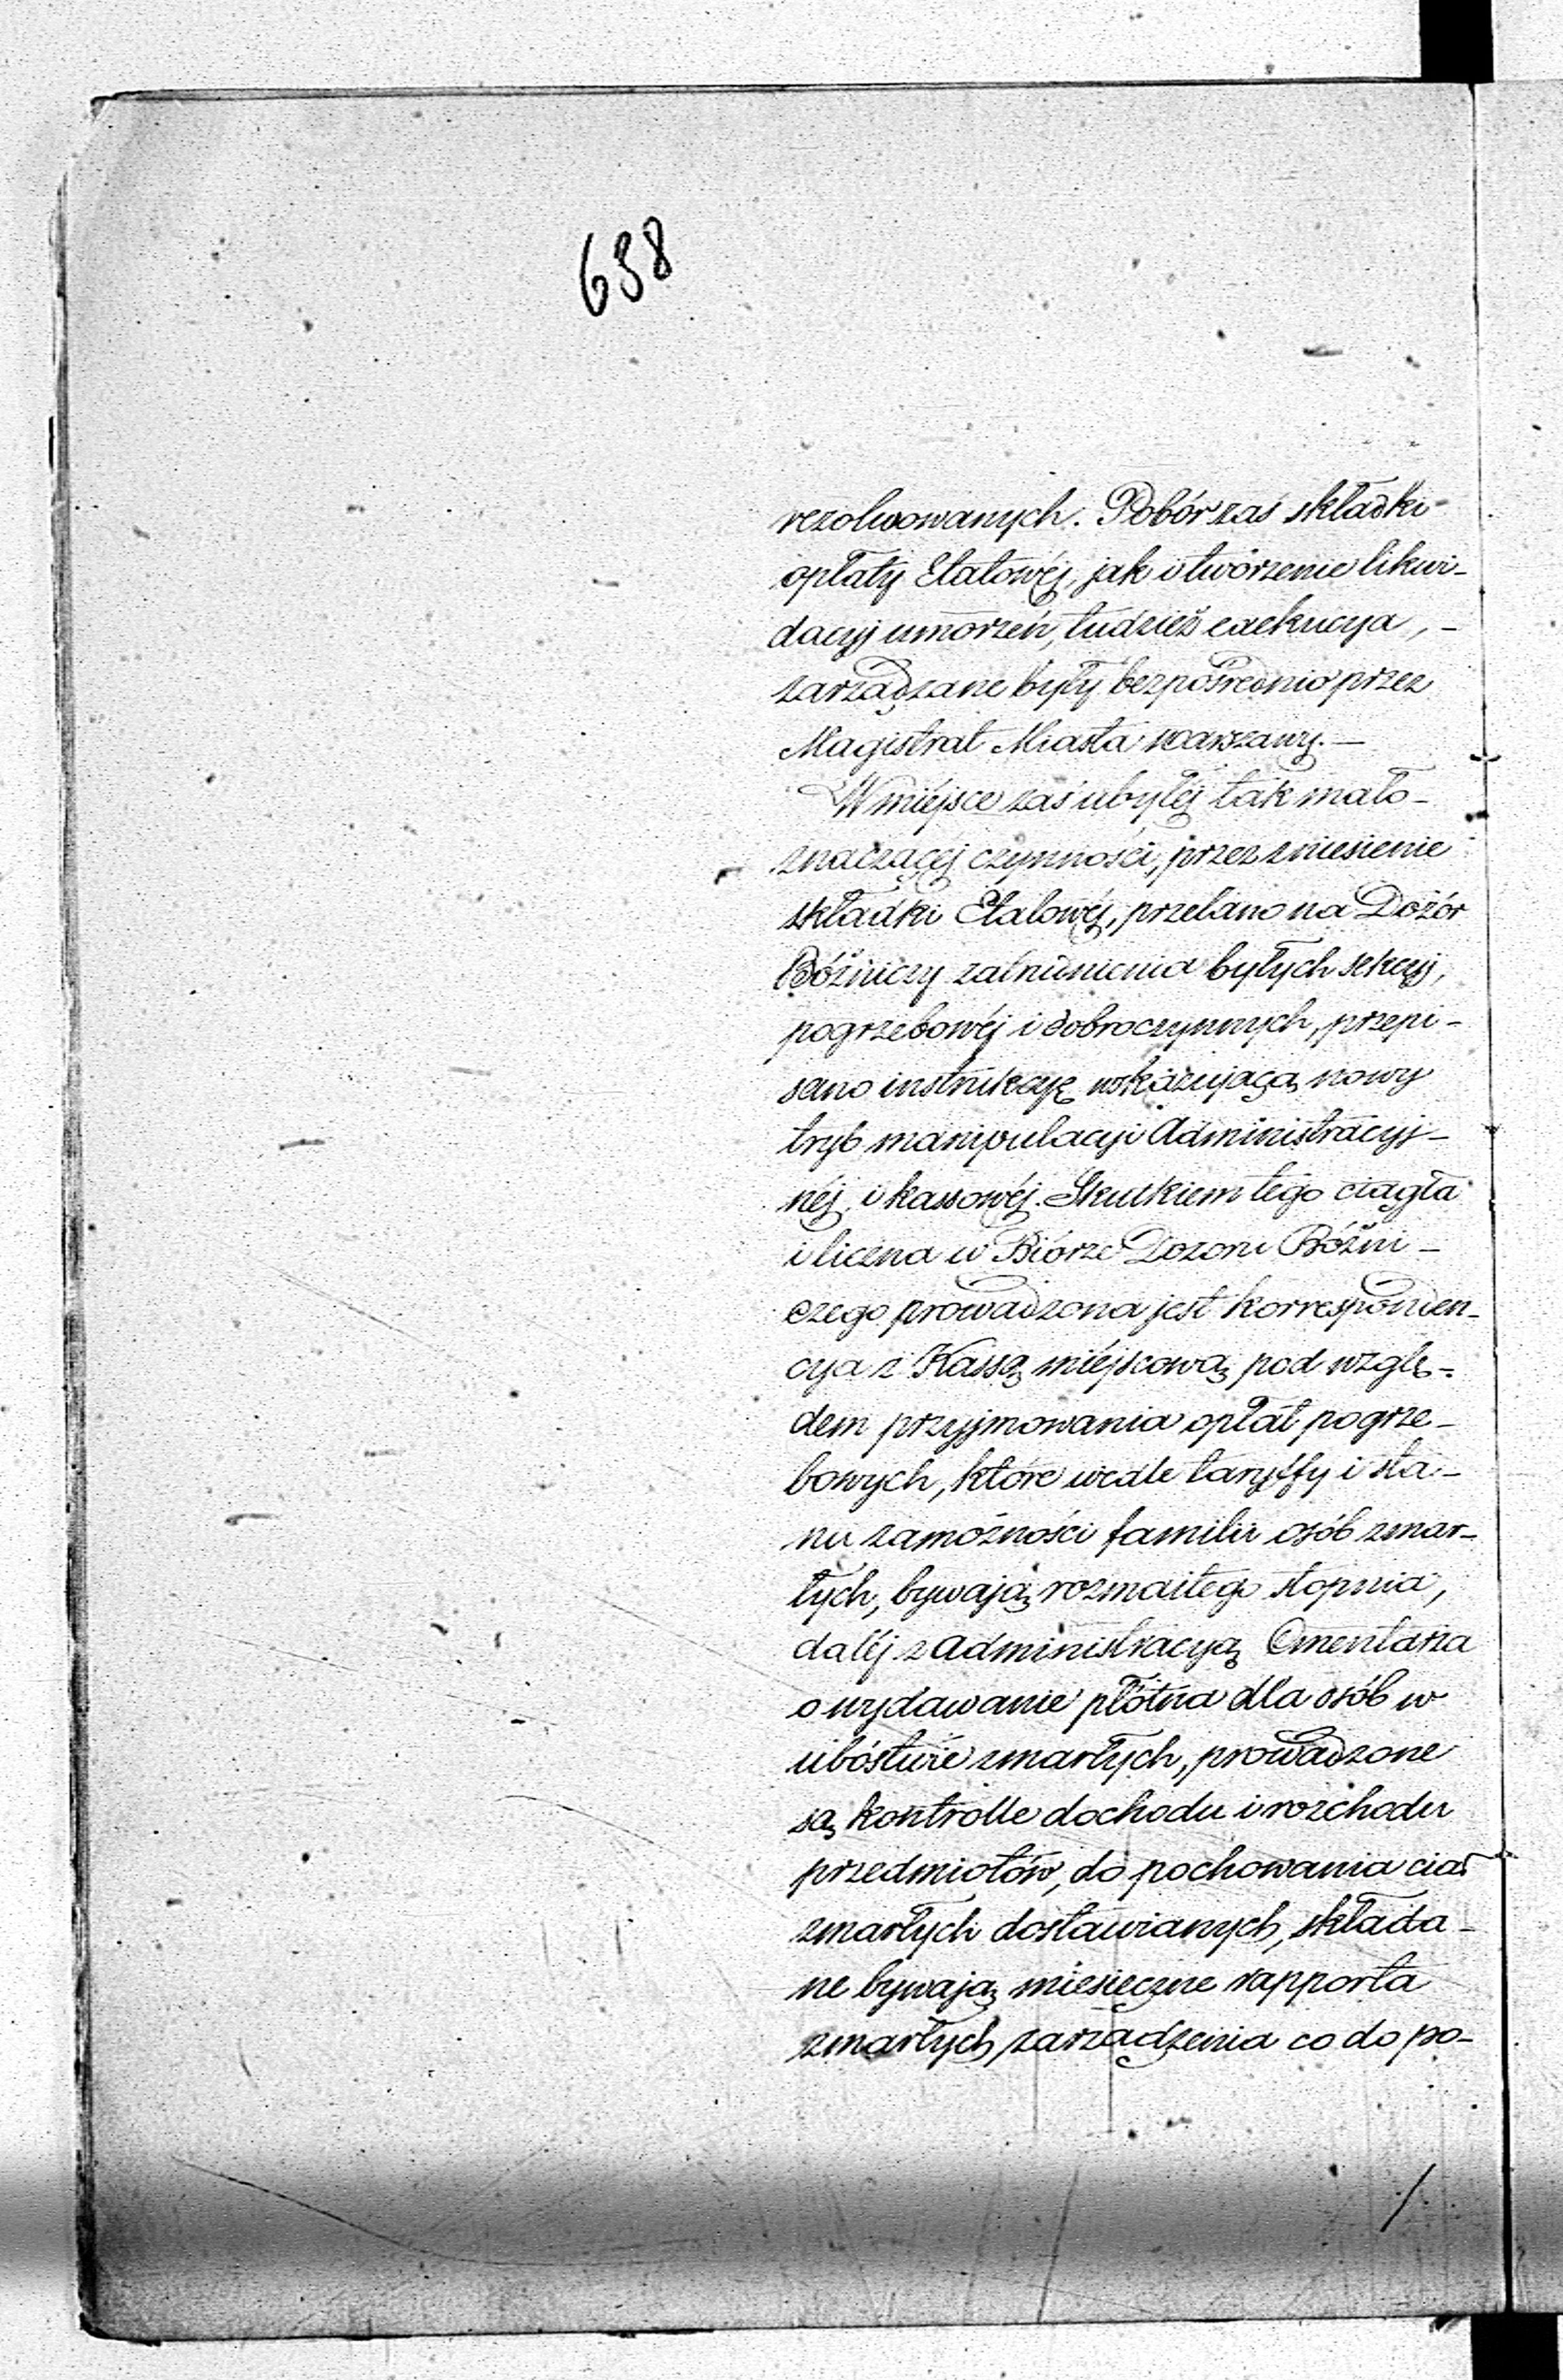 638
rezolwowanych. Pobór zaś składki
opłaty Etatowéj, jak i tworzenie likwi-
dacyj umorzeń, tudzież exekucya, -
zarządzane były bezpośrednio przez
Magistrat Miasta Warszawy. —
W miéjsce zaś ubyłéj tak mało-
znaczącéj czynności, przez zniesienie
składki Etatowéj, przelano na Dozór
Bóżniczy zatrudnienia byłych sekcyj,
pogrzebowéj i dobroczynnych, przepi-
sano instrukcyę wskazującą nowy
tryb manipulacyi Administracyj-
néj i kassowéj. Skutkiem tego ciągła
i liczna w Biórze Dozoru Bóżni-
czego prowadzona jest korresponden-
cya z Kassą miéjscową pod wzglę-
dem przyjmowania opłat pogrze-
bowych, które wedle taryffy i sta-
nu zamożności familii osób zmar-
łych, bywają rozmaitego stopnia,
daléj z Administracyą Cmentarza
o wydawanie płótna dla osób w
ubóstwie zmarłych, prowadzone
są kontrolle dochodu i rozchodu
przedmiotów, do pochowania ciał
zmarłych dostawianych, składa-
ne bywają miesięczne rapporta
zmarłych, zarządzenia co do po-